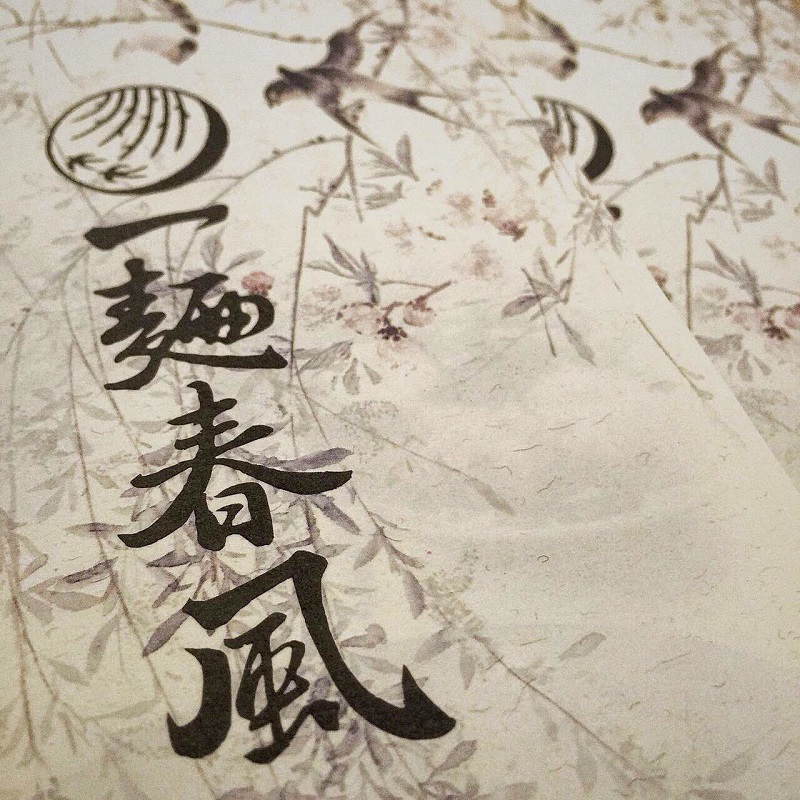 一麵春風